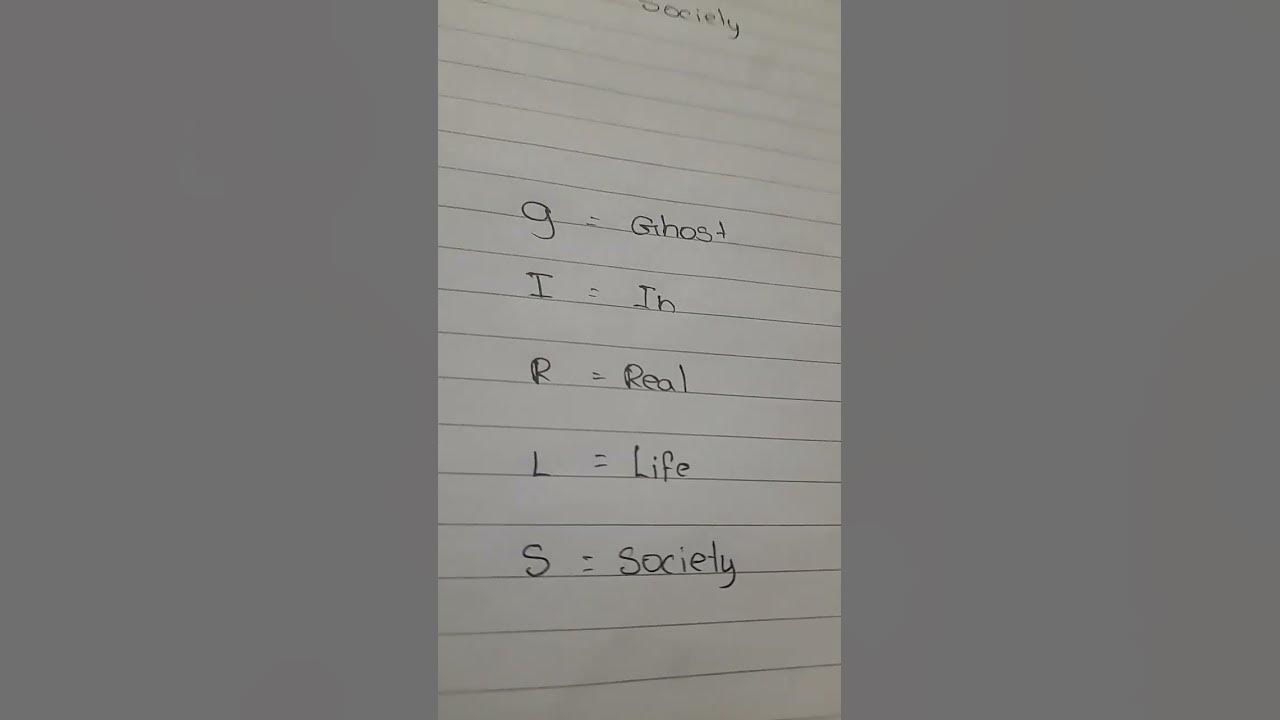 Society
g = Ghost
I = In
R = Real
L = Life
S = Society